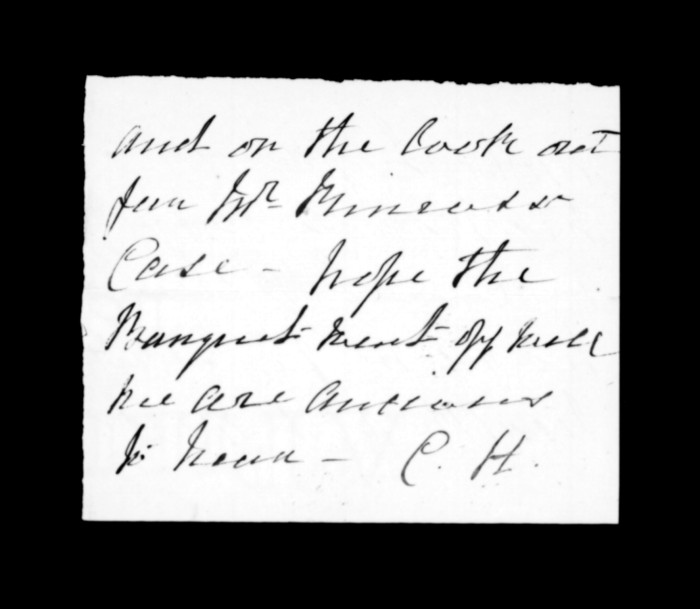 and on the look out
for Mr
Case - hope the
Banquet went off well
we are anxious
to hear - C. H.